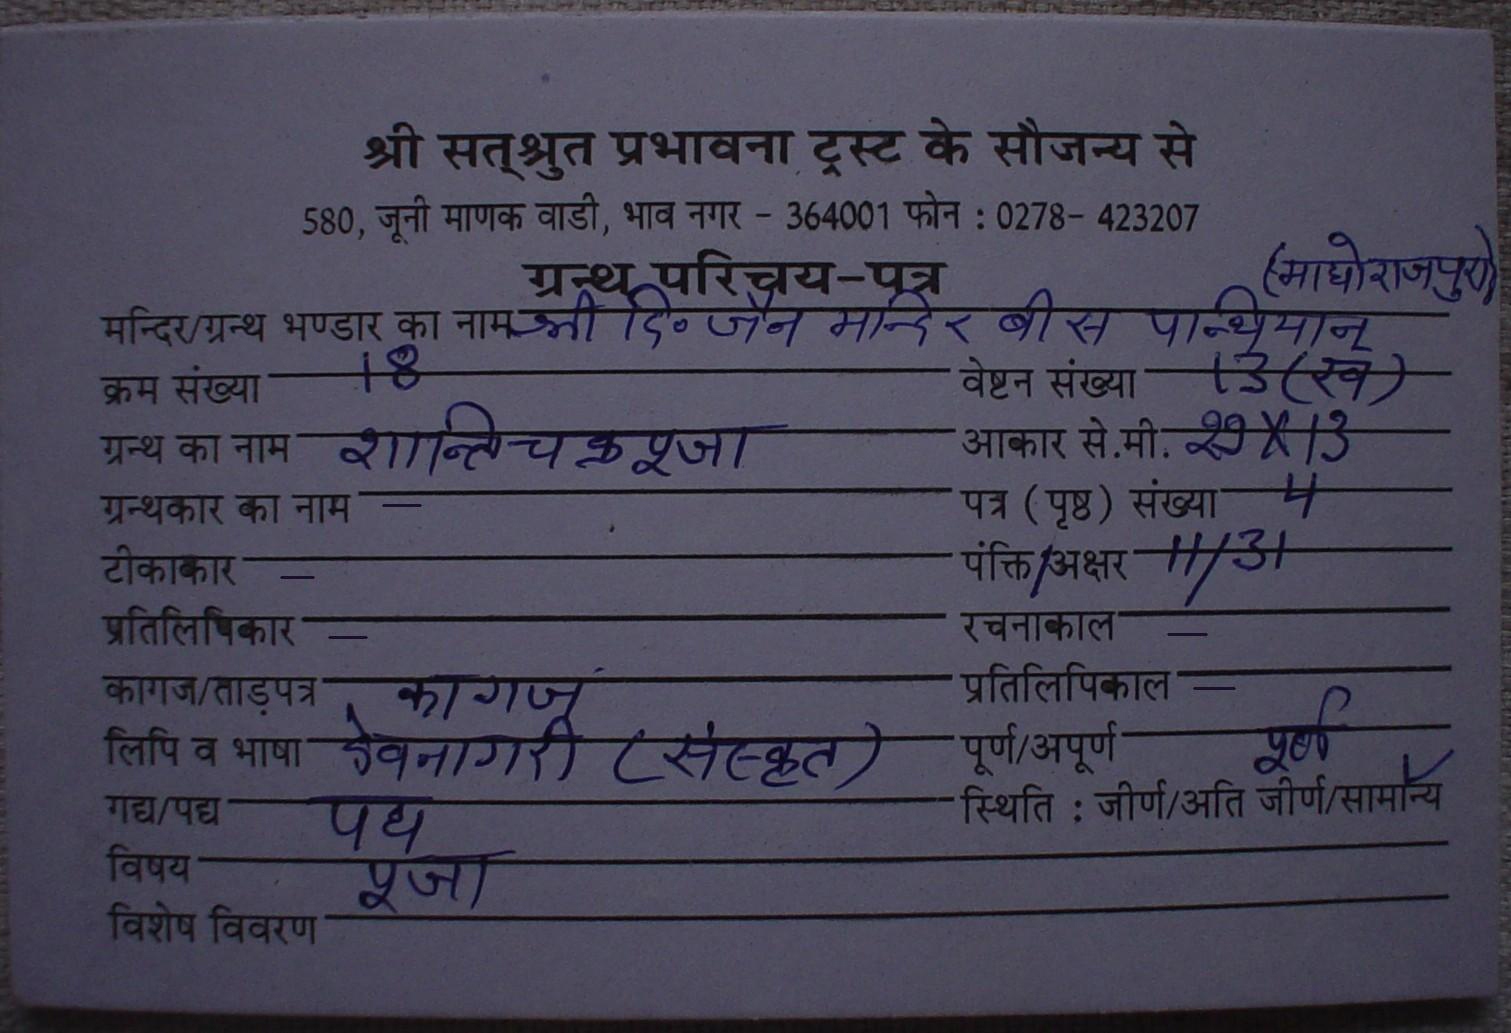 श्री सत्श्रुत प्रभावना ट्रस्ट के सौजन्य से
580, जूनी माणक वाडी, भाव नगर - 364001 फोन : 0278- 423207
ग्रन्थ परिचय-पत्र
(माधोराजपुरा)
मन्दिर/ग्रन्थ भण्डार का नाम श्री दि० जैन मन्दिर बीस पान्थियान्
क्रम संख्या 18 वेष्टन संख्या 13 (ख)
ग्रन्थ का नाम शान्तिचक्रपूजा आकार से.मी. 29 X 13
ग्रन्थकार का नाम — पत्र (पृष्ठ) संख्या 4
टीकाकार — पंक्ति/अक्षर 11/31
प्रतिलिपिकार — रचनाकाल —
कागज/ताड़पत्र कागज प्रतिलिपिकाल —
लिपि व भाषा देवनागरी (संस्कृत) पूर्ण/अपूर्ण पूर्ण
गद्य/पद्य पद्य स्थिति : जीर्ण/अति जीर्ण/सामान्य ✓
विषय पूजा
विशेष विवरण